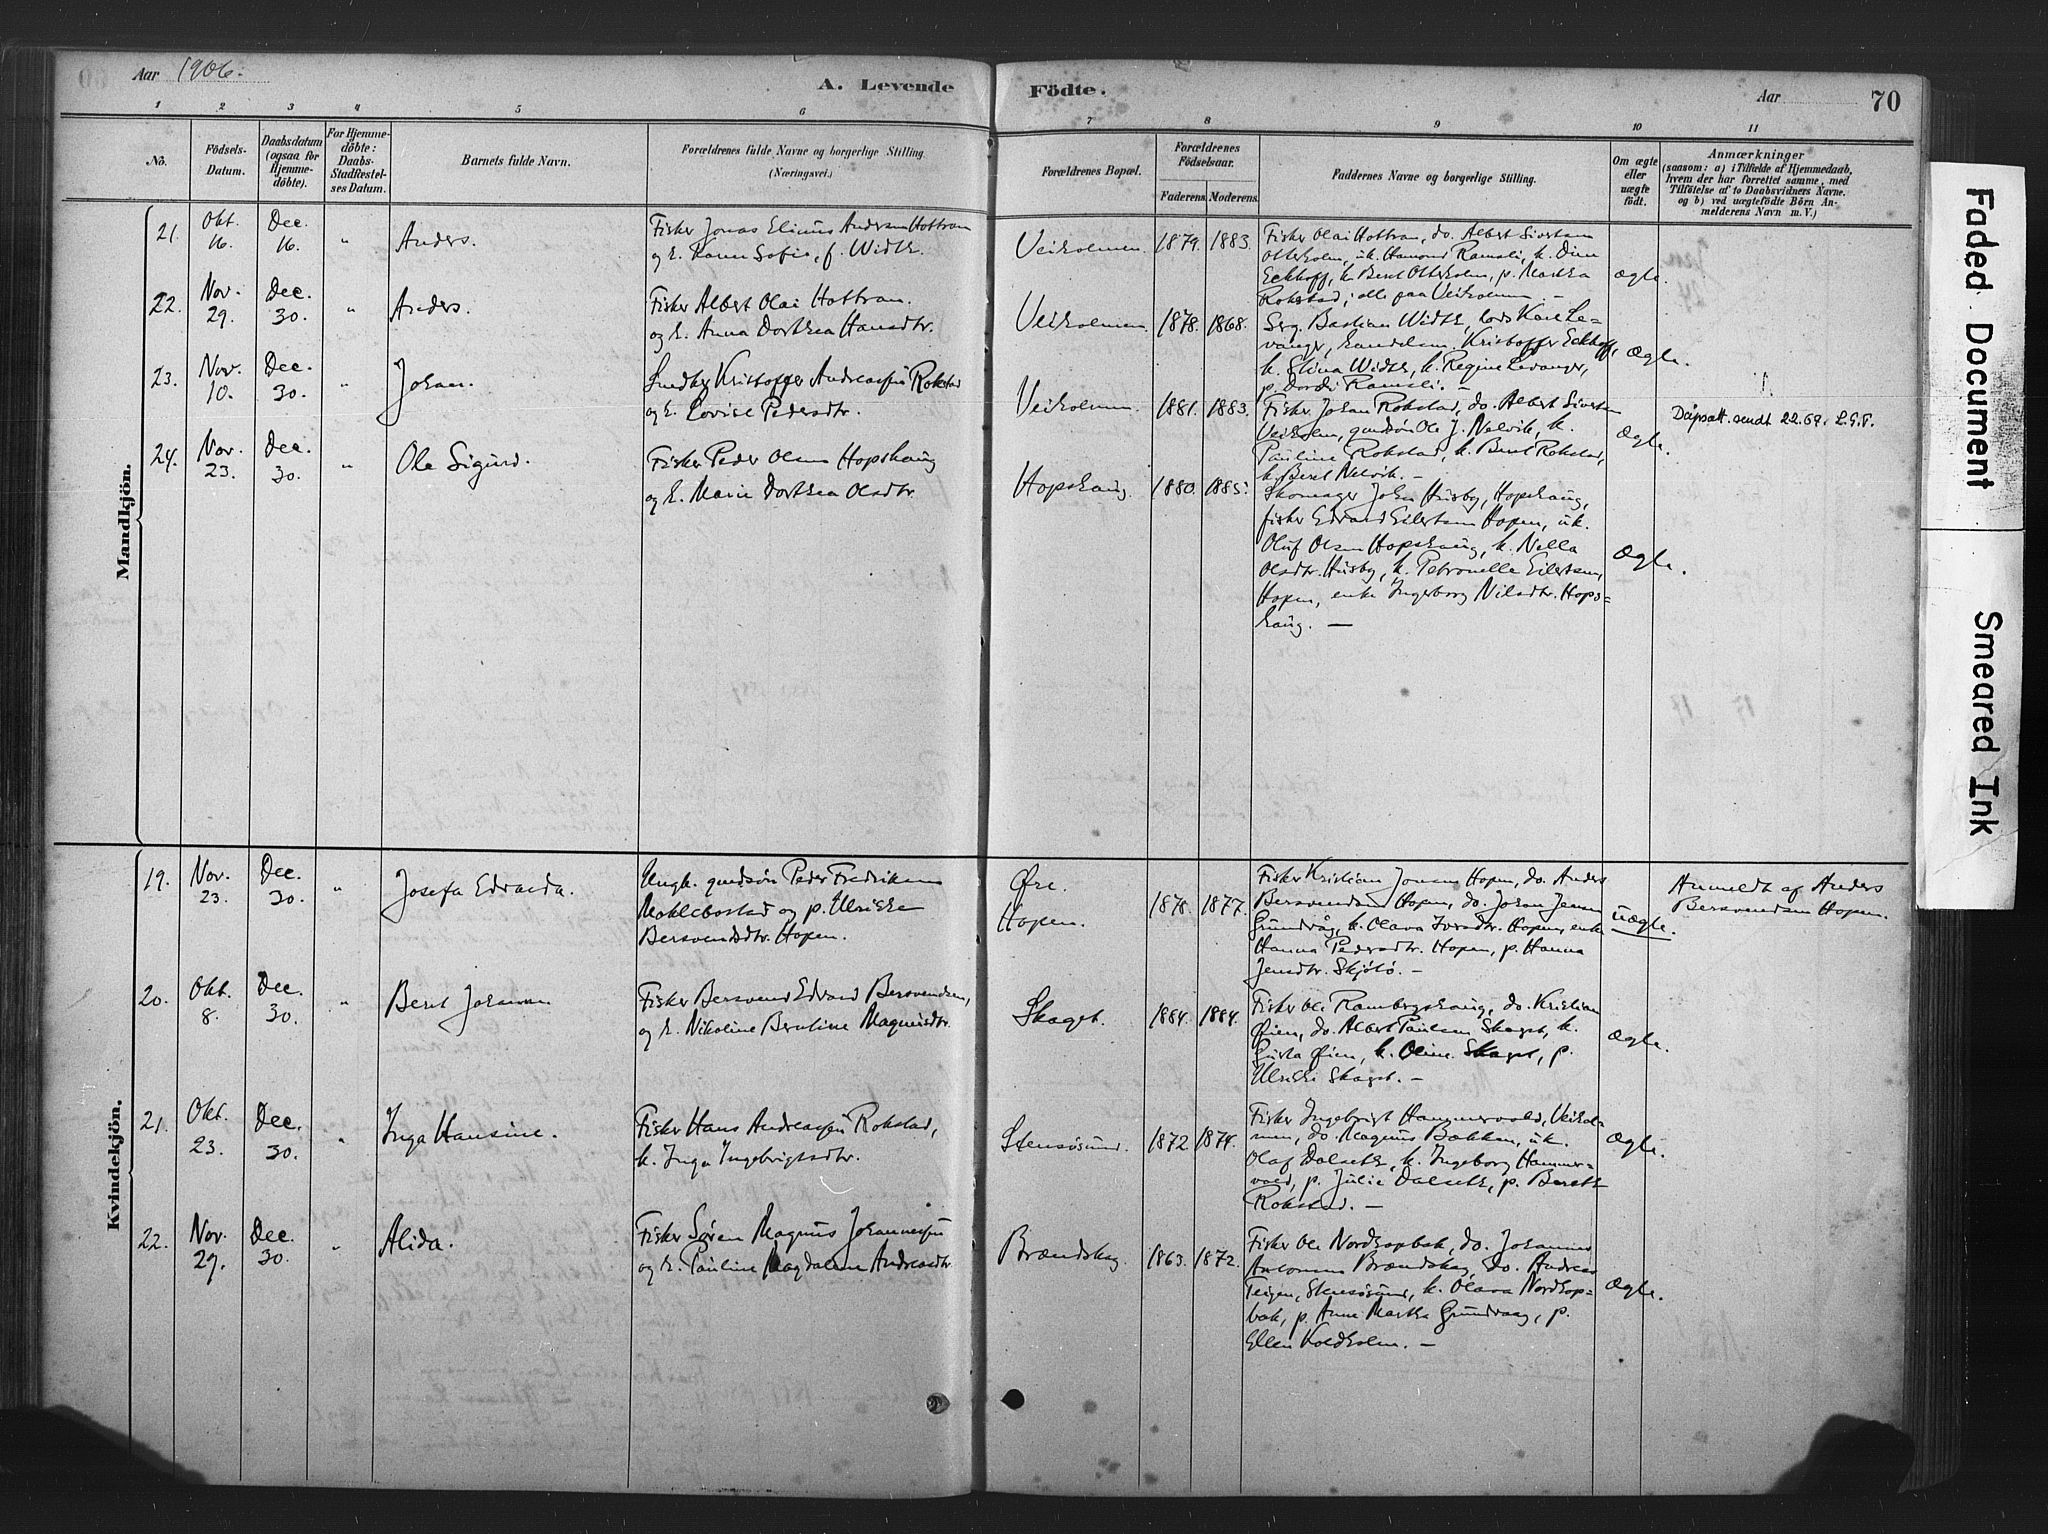 Aar 1906.
A. Levende Födte.
Aar 70
1 2 3 4 5 6 7 8 9 10 11
No.
Födsels-Datum.
Daabsdatum (ogsaa for Hjemmedöbte).
For Hjemmedöbte: Daabs-Stadfestelses Datum.
Barnets fulde Navn.
Forældrenes fulde Navne og borgerlige Stilling.
(Næringsvei.)
Forældrenes Bopæl.
Forældrenes Födselsaar.
Faderens. Moderens.
Faddernes Navne og borgerlige Stilling.
Om ægte eller uægte födt.
Anmærkninger
(saasom: a) i Tilfælde af Hjemmedaab,
hvem der har forrettet samme, med
Tilföielse af to Daabsvidners Navne.
og b) ved uægtefödte Börn An-
melderens Navn m. V.)
Mandkjön.
21. Okt. 16. Dec. 16. " Anders.
Fisker Jonas Elinus Andersen Hottran
og h. Karen Sofie, f. Width.
Veiholmen. 1879. 1883.
Fisker Olai Hottran, do. Albert Sivertsen
Otterholm, uk. Hamond Ramsli, k. Dina
Eckhoff, k. Berit Otterholm, p. Martha
Rokstad, alle paa Veiholmen. —
ægte.
22. Nov. 29. Dec. 30. " Anders.
Fisker Albert Olai Hottran.
og h. Anna Dorthea Hansdtr.
Veiholmen. 1878. 1868.
Serg. Bastian Width, lods Kare Le-
vanger, handelsm. Kristoffer Eckhoff,
k. Elina Width, k. Regine Levanger,
p. Dordi Ramsli. —
ægte.
23. Nov. 10. Dec. 30. " Johan.
Smed Kristoffer Andreassen Rokstad
og h. Lovise Pedersdtr.
Veiholmen. 1881. 1883.
Fisker Johan Rokstad, do. Albert Sivertsen
Veiholm, gmdsøn Ole J. Nelvik, k.
Pauline Rokstad, k. Berit Rokstad,
k. Berit Nelvik. —
Ægte.
Dåpsatt. sendt 22.69. L.G.F.
24. Nov. 23. Dec. 30. " Ole Sigurd.
Fisker Peder Olsen Hopshaug
og h. Marie Dorthea Olsdtr.
Hopshaug. 1880. 1885.
Skomager Johan Husby, Hopshaug,
fisker Edvard Eilertsen Hopen, uk.
Oluf Olsen Hopshaug, k. Nella
Olsdtr. Husby, k. Petronelle Eilertsen,
Hopen, enke Ingeborg Nilsdtr. Hops-
haug. —
Ægte.
Kvindekjön.
19. Nov. 23. Dec. 30. " Josefa Edvarda.
Ungk. gmdsøn Peder Fredriksen
Moklebostad og p. Ulrikke
Bersvendsdtr. Hopen.
Øre.
Hopen. 1878. 1877.
Fisker Kristian Jonsen Hopen, do. Anders
Bersvendsen Hopen, do. Johan Jensen
Grundvåg, k. Olava Ivarsdtr. Hopen, enke
Hanna Pedersdtr. Hopen, p. Hanna
Jensdtr. Skjølø. —
uægte.
Anmeldt af Anders
Bersvendsen Hopen.
20. Okt. 8. Dec. 30. " Berit
Fisker Bersvend Edvard Bersvendsen,
og h. Nikoline Berntine Magnusdtr.
Skaget. 1884. 1884.
Fisker Ole Rambergshaug, do. Kristian
Øien, do. Albert Paulsen Skaget, k.
Gusta Øien, k. Oline Skaget, p.
Ulrikke Skaget. —
Ægte.
21. Okt. 23. Dec. 30. " Inga Hansine.
Fisker Hans Andreassen Rokstad,
h. Inga Ingebrigtsdtr.
Stensøsund. 1872. 1874.
Fisker Ingebrigt Hammervold, Veihol-
men, do. Magnus Bakken, uk.
Olaf Dalseth, k. Ingeborg Hammer-
vold, p. Julie Dalseth, p. Bereth
Rokstad. —
Ægte.
22. Nov. 29. Dec. 30. " Alida.
Fisker Søren Magnus Johannessen
og h. Pauline Magdalena Andreasdtr.
Brændskag. 1863. 1872.
Fisker Ole Nordhopbak, do. Johannes
Antonsen Brændskag, do. Andreas
Teigen, Stensøsund, k. Olava Nordhop-
bak, p. Anne Martha Grundvaag, p.
Ellen Koldholm. —
Ægte.
Faded Document
Smeared Ink